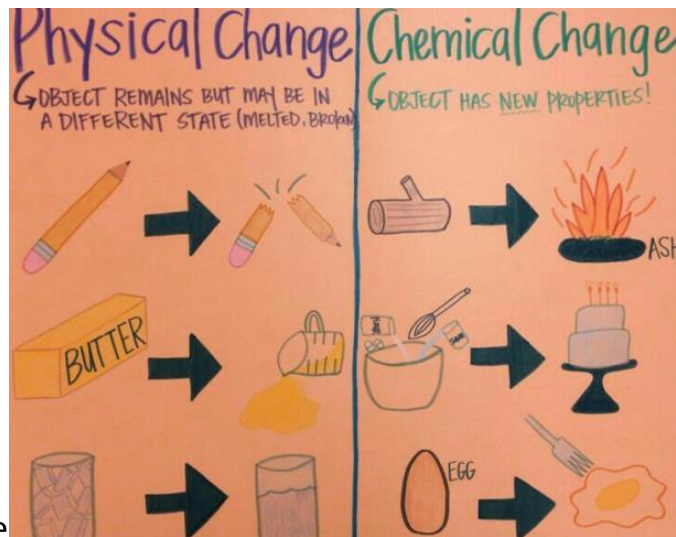 Physical Change
OBJECT REMAINS BUT MAY BE IN
A DIFFERENT STATE (MELTED, BROKEN)
BUTTER
Chemical Change
OBJECT HAS NEW PROPERTIES!
ASH
EGG
e